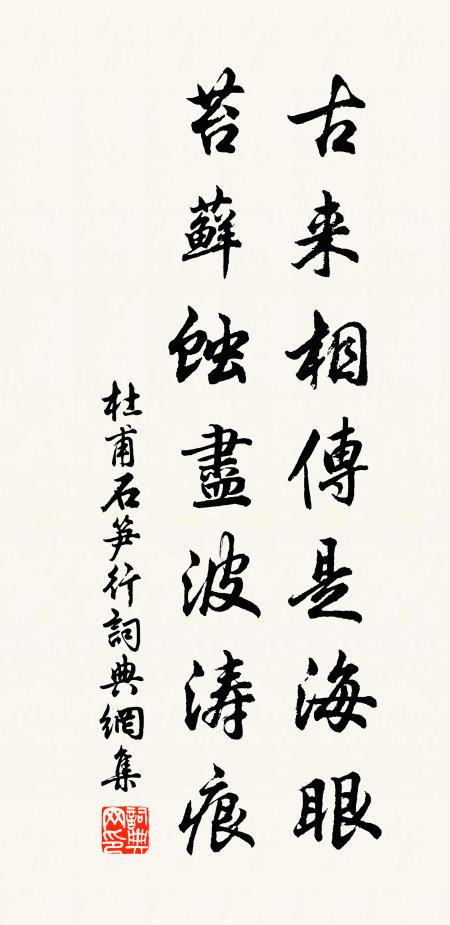 古来相傳是海眼
苔蘚蝕盡波涛痕
杜甫石笋行詞典網集
詞典网印